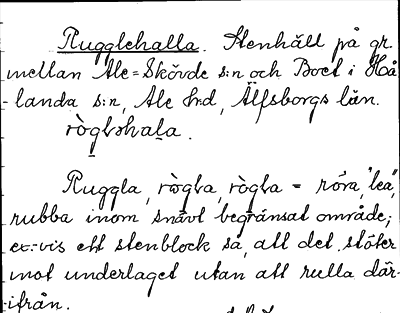 Rugglehalla. Stenhäll på gr.
mellan Ale-Skövde s:n och Boet i Hå-
landa s:n, Ale hd, Älfsborgs län.
ròglahala.
Ruggla, rògla, rògla = röra, "lea",
rubba inom snävt begränsat område;
ex:vis ett stenblock så, att det stöter
mot underlaget utan att rulla där-
ifrån.